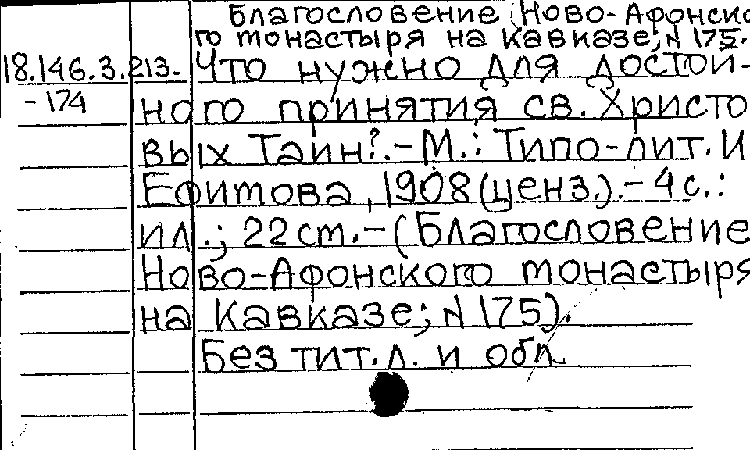 Благословение Ново-Афонско
го монастыря на Кавказе, N 175.
18.146.3.213. Что нужно для достой-
-174 ного принятия св. Христо
вых Таин?.-М.: Типо-лит. И
Ефимова, 1908(ценз.).-4с.:
ил.; 22см.-(Благословение
Ново-Афонского монастыря
на Кавказе; N 175).
Без тит.л. и обл.